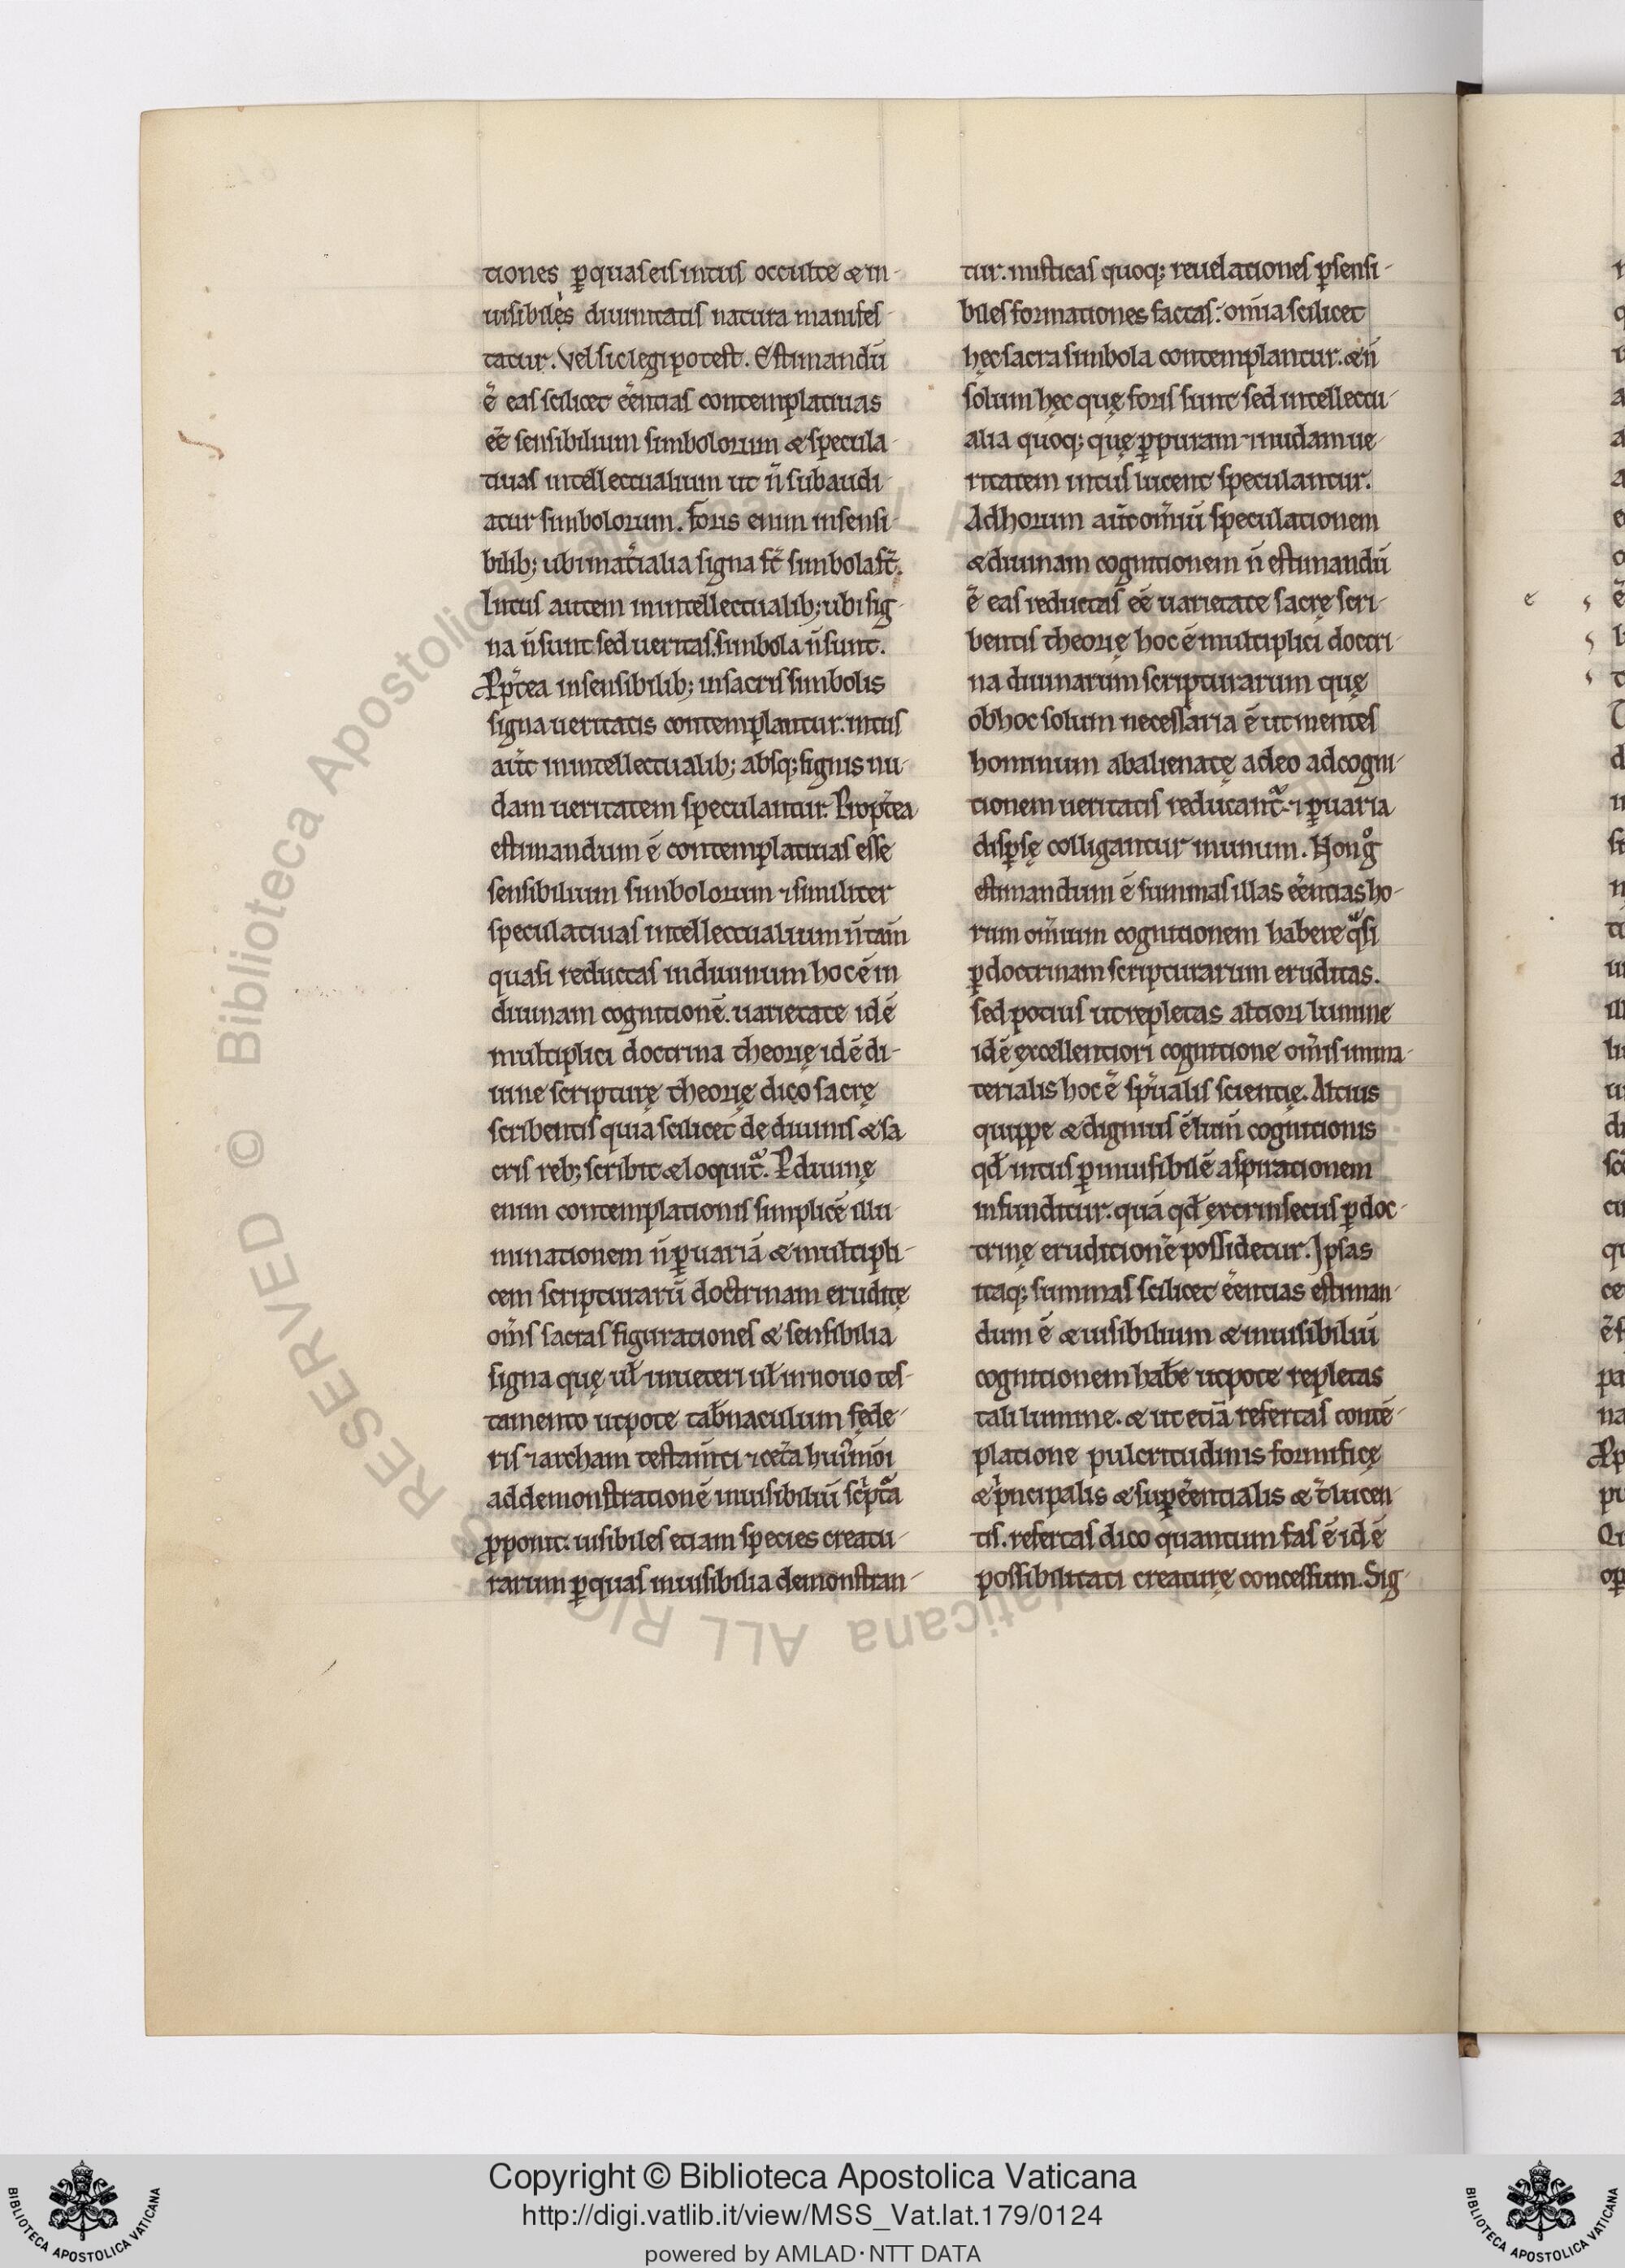 tiones ꝑ quas eis intus occulte & in-
uisibilẹs diuinitatis natura manifes-
tatur. Vel sic legi potest. Estimandū
ē eas scilicet eēntias contemplatiuas
eē sensibilium simbolorum & specula-
tiuas intellectualium ut n̄ subaudi-
atur simbolorum. Foris enim in sensi-
bilib; ubi mat̄ialia signa st̄ simbola st̄.
Intus autem in intellectualib; ubi sig-
na n̄ sunt sed ueritas, simbola n̄ sunt.
& ꝑp̄tea in sensibilib; in sacris simbolis
signa ueritatis contemplantur. intus
aūt in intellectualib; absq; signis nu-
dam ueritatem speculantur. Propt̄ea
estimandum ē contemplatiuas esse
sensibilium simbolorum ⁊ similiter
speculatiuas intellectualium n̄ tam̄
quasi reductas in diuinum hoc ē in
diuinam cognitionē. uarietate id ē
multiplici doctrina theorię id ē di-
uine scripturę theorię dico sacrę
scribentis quia scilicet de diuinis & sa
cris reb; scribit & loquit̃. P diuinę
enim contemplationis simplicē illu-
minationem n̄ ꝑ uariā & multipli-
cem scripturarū doctrinam eruditę
om̄s sacras figurationes & sensibilia
signa quę uł in ueteri uł in nouo tes-
tamento utpote tab̄naculum fęde-
ris ⁊ archam testam̄ti ⁊ cet̄a hui'mōi
ad demonstrationē inuisibiliū sc̄pt̃a
ꝓponit. uisibiles etiam species creatu-
rarum ꝑ quas inuisibilia demonstran-
tur. misticas quoq; reuelationes ꝑ sensi-
biles formationes factas: om̄ia scilicet
hęc sacra simbola contemplantur. & n̄
solum hęc quę foris sunt sed intellectu-
alia quoq; quę ꝑ puram ⁊ nudam ue-
ritatem intus lucent speculantur.
Ad horum aūt om̄iū speculationem
& diuinam cognitionem n̄ estimandū
ē eas reductas eē uarietate sacrę scri-
bentis theorię hoc ē multiplici doctri-
na diuinarum scripturarum quę
ob hoc solum necessaria ē ut mentes
hominum abalienatę a deo ad cogni-
tionem ueritatis reducant̃. ⁊ ꝑ uaria
disꝑsę colligantur in unum. Non gͦ
estimandum ē summas illas eēntias ho-
rum om̄ium cognitionem habere q̃si
ꝑ doctrinam scripturarum eruditas.
sed potius ut repletas altiori lumine
id ē excellentiori cognitione om̄is imma-
terialis hoc ē sp̄ualis scientię. Altius
quippe & dignius ē lum̄ cognitionis
qđ intus ꝑ inuisibilē aspirationem
infunditur. quā qđ extrinsecus ꝑ doc-
trinę eruditionē possidetur. Ipsas
itaq; summas scilicet eēntias estiman-
dum ē & uisibilium & inuisibiliū
cognitionem hab̄e utpote repletas
tali lumine. & ut etiā refertas contē-
platione pulcritudinis formificę
& p̄ncipalis & suꝑeēntialis & t̄lucen-
tis. refertas dico quantum fas ē id ē
possibilitati creaturę concessum. Sig-
Copyright © Biblioteca Apostolica Vaticana
http://digi.vatlib.it/view/MSS_Vat.lat.179/0124
powered by AMLAD·NTT DATA